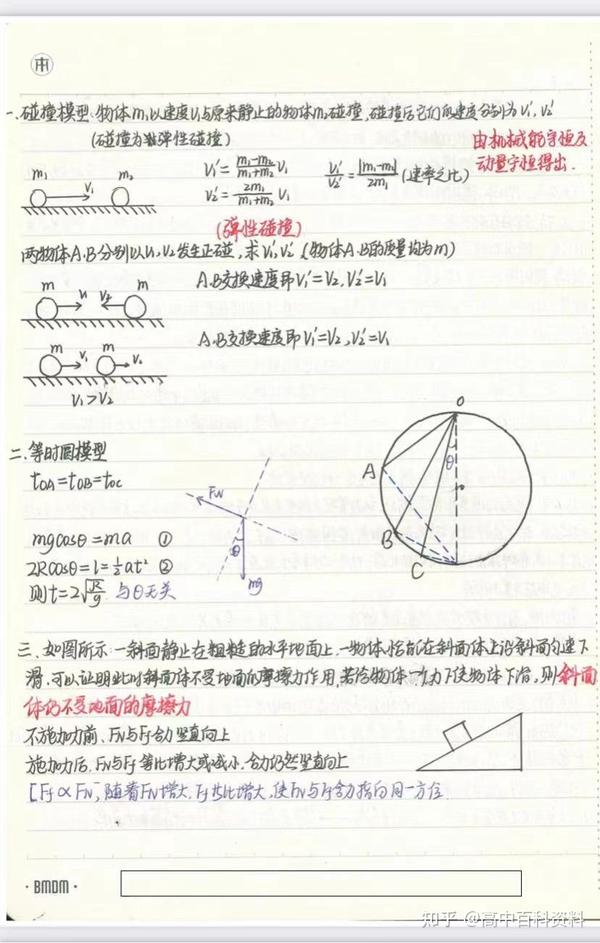 一、碰撞模型、物体m₁以速度V₁与原来静止的物体m₂碰撞,碰撞后它们的速度分别为V₁′,V₂′
(碰撞为弹性碰撞)
由机械能守恒及
动量守恒得出.
m₁ V₁ m₂
V₁′=\frac{m₁-m₂}{m₁+m₂}V₁ \frac{V₁′}{V₂′}=\frac{|m₁-m₂|}{2m₁}(速率之比)
V₂′=\frac{2m₁}{m₁+m₂}V₁
(弹性碰撞)
两物体A.B分别以V₁,V₂发生正碰,求V₁′,V₂′(物体A、B的质量均为m)
m V₁ V₂ m
A.B交换速度即V₁′=V₂,V₂′=V₁
m V₁ m V₂
A.B交换速度即V₁′=V₂,V₂′=V₁
V₁>V₂
二、等时圆模型
tOA=tOB=tOC
mgcosθ=ma ①
2Rcosθ=l=½at² ②
则t=2\sqrt{\frac{R}{g}} 与θ无关
FN θ mg
O θ A B C
三、如图所示 一斜面静止在粗糙的水平地面上,一物体恰能在斜面体上沿斜面匀速下
滑,可以证明此时斜面体不受地面的摩擦力作用,若给物体一力F使物体下滑,则斜面
体仍不受地面的摩擦力
不施加力前、FN与Ff合力竖直向上
施加力后、FN与Ff等比增大或减小,合力仍然竖直向上
[Ff∝FN,随着FN增大,Ff也比增大,使FN与Ff合力指向同一方位
·BMDM·
知乎 @高中百科资料